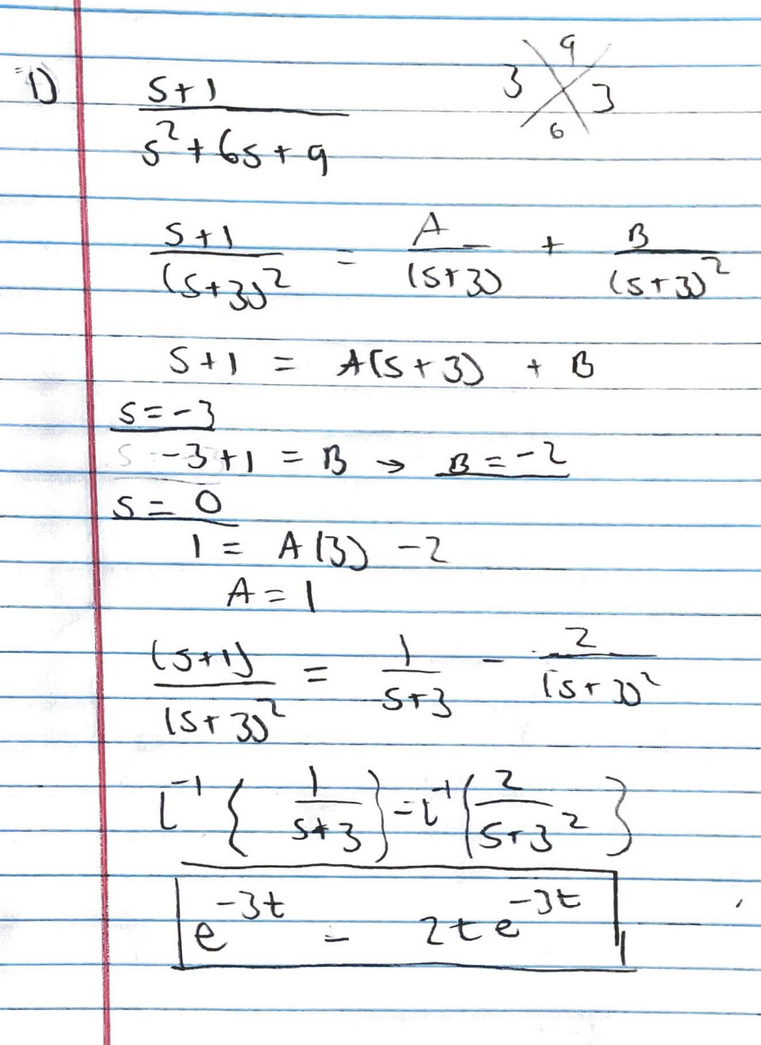 1) s+1 / s²+6s+9
9
3 3
6
s+1 / (s+3)² = A / (s+3) + B / (s+3)²
s+1 = A(s+3) + B
s=-3
-3+1 = B → B=-2
s= 0
1 = A(3) -2
A=1
(s+1) / (s+3)² = 1 / s+3 - 2 / (s+3)²
L⁻¹{ 1 / s+3 } - L⁻¹{ 2 / s+3² }
e⁻³ᵗ - 2te⁻³ᵗ